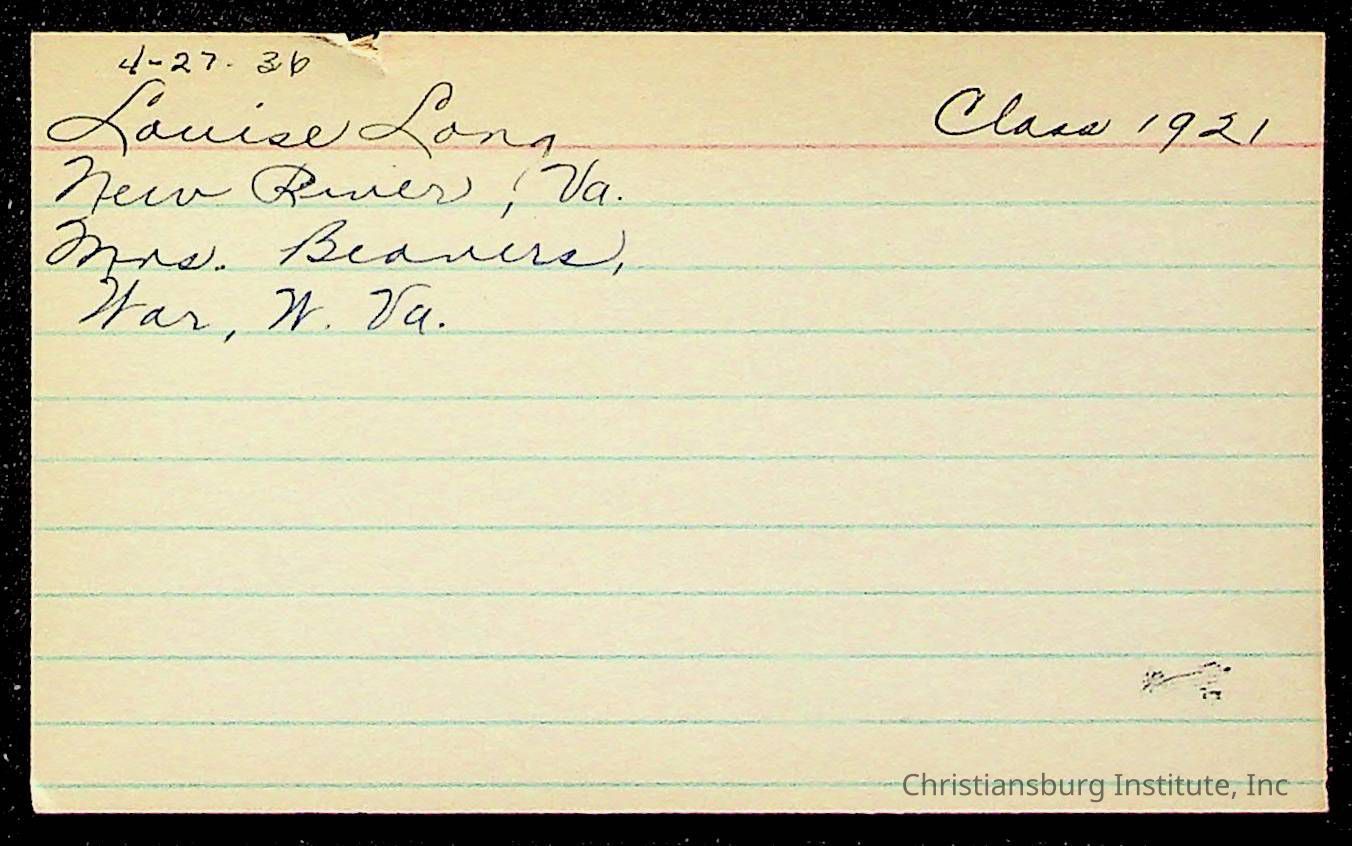 4-27-36
Louise Long Class 1921
New River, Va.
Mrs. Beavers,
War, W. Va.
Christiansburg Institute, Inc